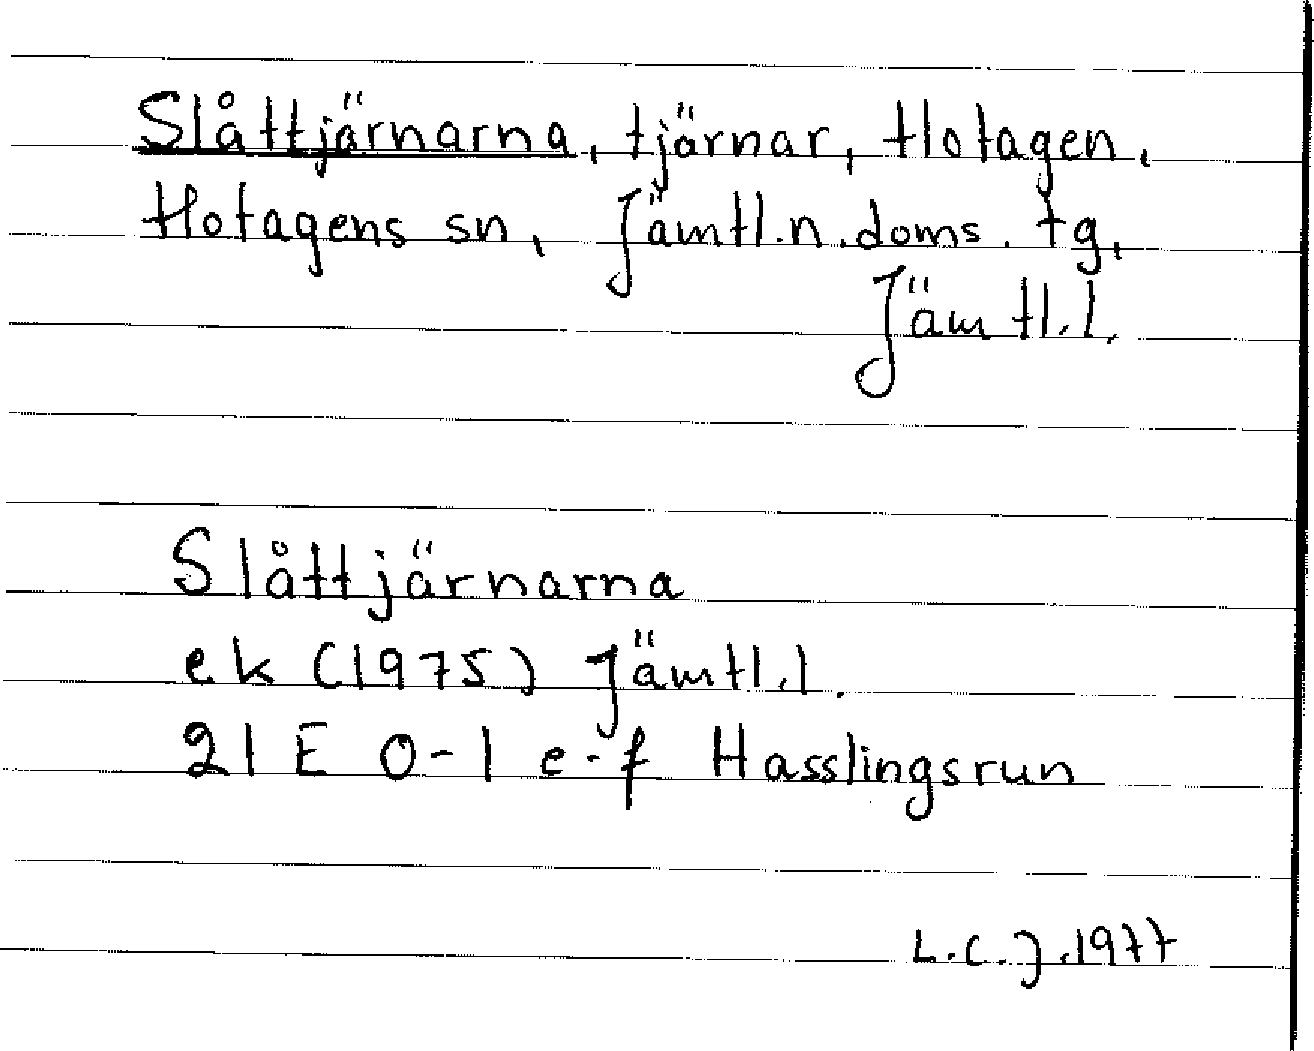 Slåttjärnarna, tjärnar, Hotagen,
Hotagens sn, Jämtl.n.doms.tg,
Jämtl.l.
Slåttjärnarna
ek (1975) Jämtl.l.
21 E 0-1 e-f Hasslingsrun
L.C.J.1977